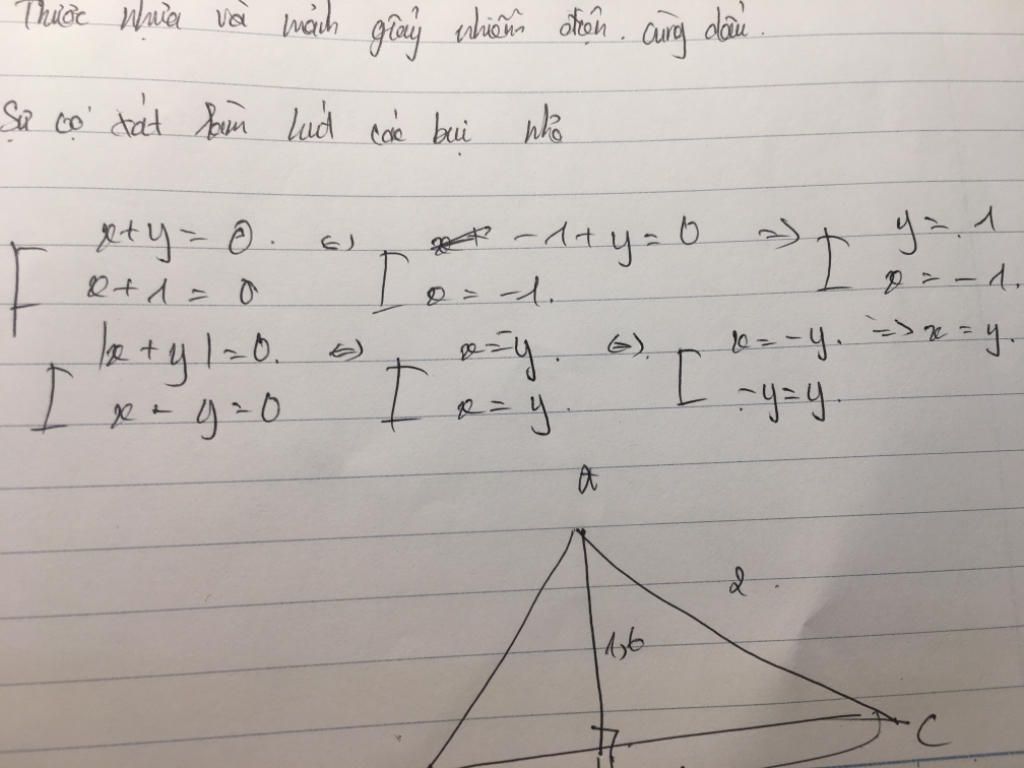 Thước nhựa và mảnh giấy nhiễm điện. cùng dấu.
Sự cọ xát làm lướt các bụi nhỏ
x+y=0. <=> -1+y=0 => y=1
x+1=0 x=-1. x=-1.
|x+y|=0. <=> x=-y. <=>. x=-y. => x=y.
x-y=0 x=y. -y=y.
A
2.
1,6
C